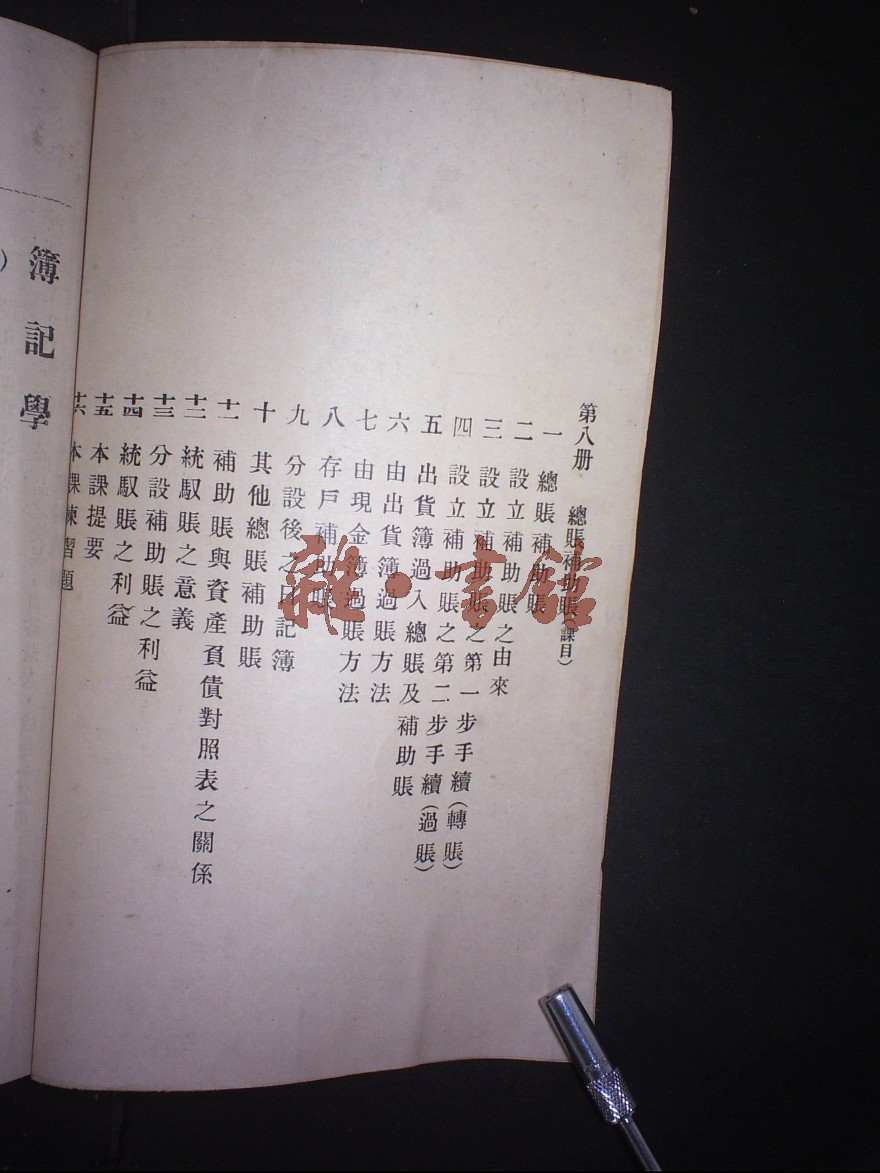 第八册　總賬補助賬(課目)
一　總賬補助賬
二　設立補助賬之由來
三　設立補助賬之第一步手續(轉賬)
四　設立補助賬之第二步手續(過賬)
五　出貨簿過入總賬及補助賬
六　由出貨簿過賬方法
七　由現金簿過賬方法
八　存戶補助賬
九　分設後之日記簿
十　其他總賬補助賬
十一　補助賬與資產負債對照表之關係
十二　統馭賬之意義
十三　分設補助賬之利益
十四　統馭賬之利益
十五　本課提要
十六　本課練習題
簿記學
)
雜·書館